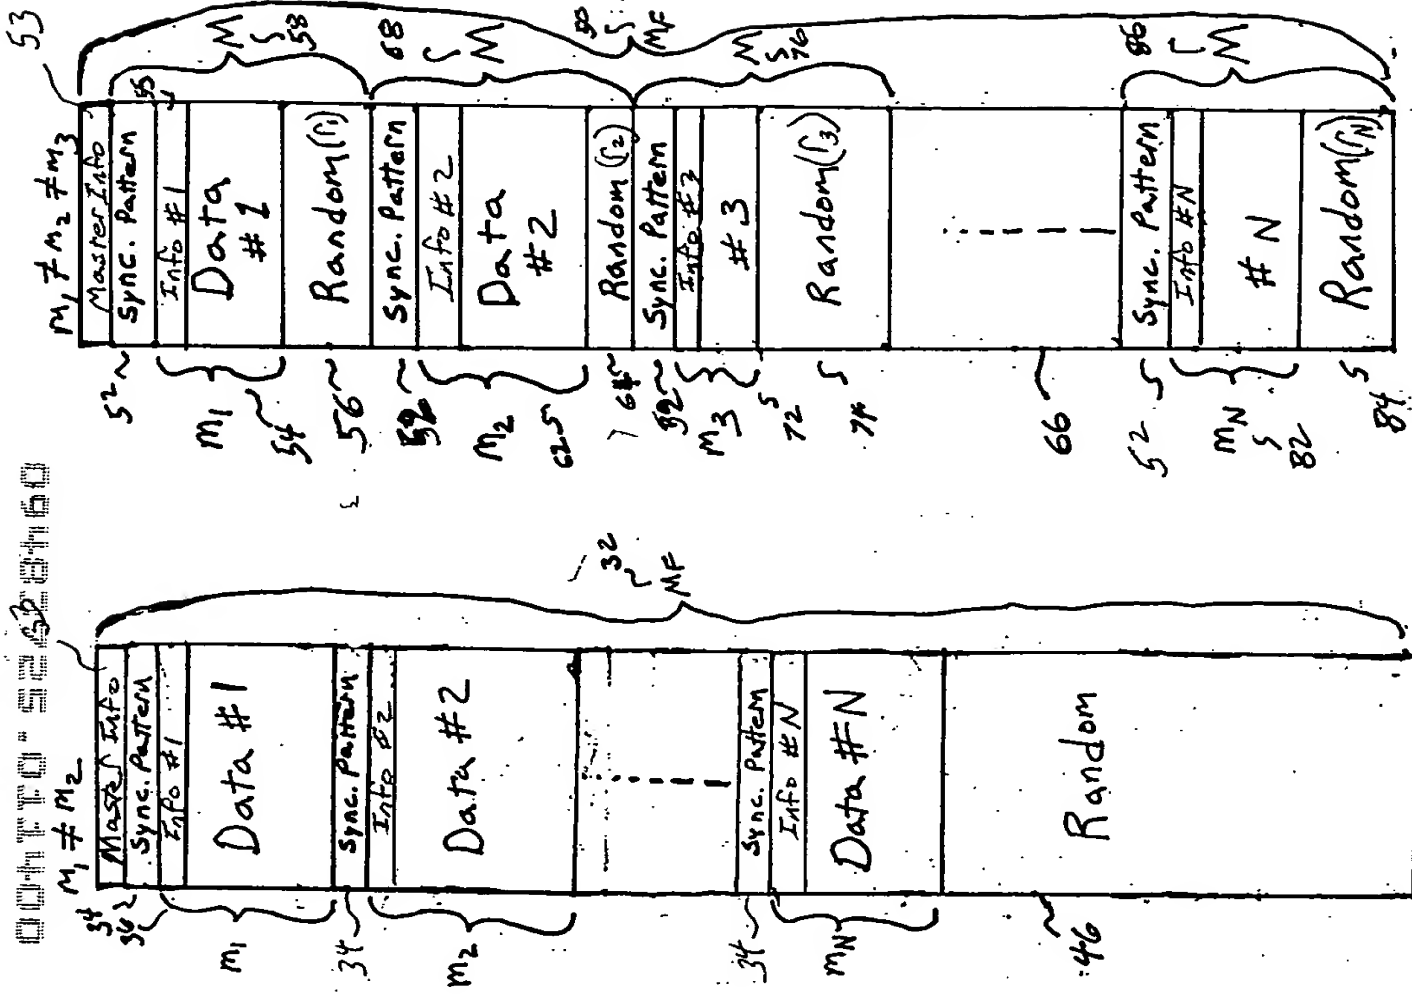 M1 ≠ M2 ≠ M3
53
Master Info
Sync. Pattern
55
Info #1
Data
#1
Random (r1)
Sync. Pattern
Info #2
Data
#2
Random (r2)
Sync. Pattern
Info #3
#3
Random (r3)
Sync. Pattern
Info #N
#N
Random (rN)
M
58
68
M
50
MF
M
76
86
M
52
m1
54
56
m2
62
64
52
m3
72
74
66
52
mN
82
84
M1 ≠ M2
Master Info
Sync. Pattern
Info #1
Data #1
Sync. Pattern
Info #2
Data #2
Sync. Pattern
Info #N
Data #N
Random
32
MF
34
m1
34
m2
34
mN
46